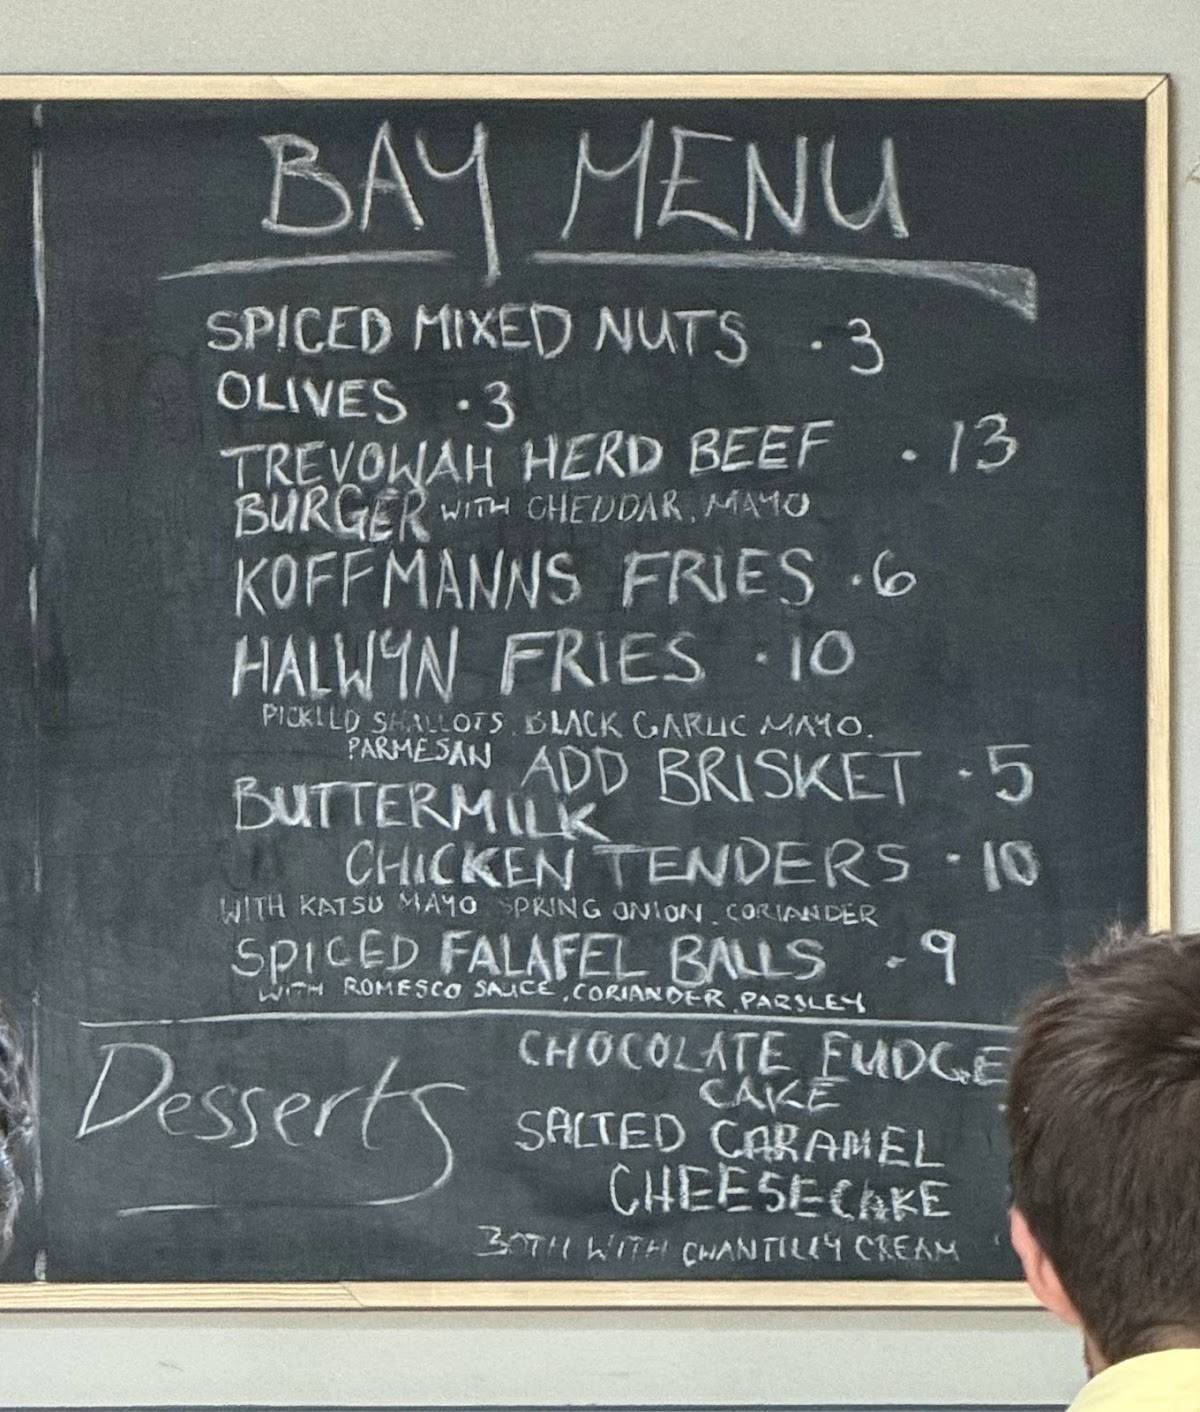 BAY MENU
SPICED MIXED NUTS · 3
OLIVES · 3
TREVOWAH HERD BEEF · 13
BURGER WITH CHEDDAR, MAYO
KOFFMANNS FRIES · 6
HALWYN FRIES · 10
PICKLED SHALLOTS, BLACK GARLIC MAYO.
PARMESAN ADD BRISKET · 5
BUTTERMILK
CHICKEN TENDERS · 10
WITH KATSU MAYO SPRING ONION, CORIANDER
SPICED FALAFEL BALLS · 9
WITH ROMESCO SAUCE, CORIANDER, PARSLEY
Desserts
CHOCOLATE FUDGE
CAKE
SALTED CARAMEL
CHEESECAKE
BOTH WITH CHANTILLY CREAM